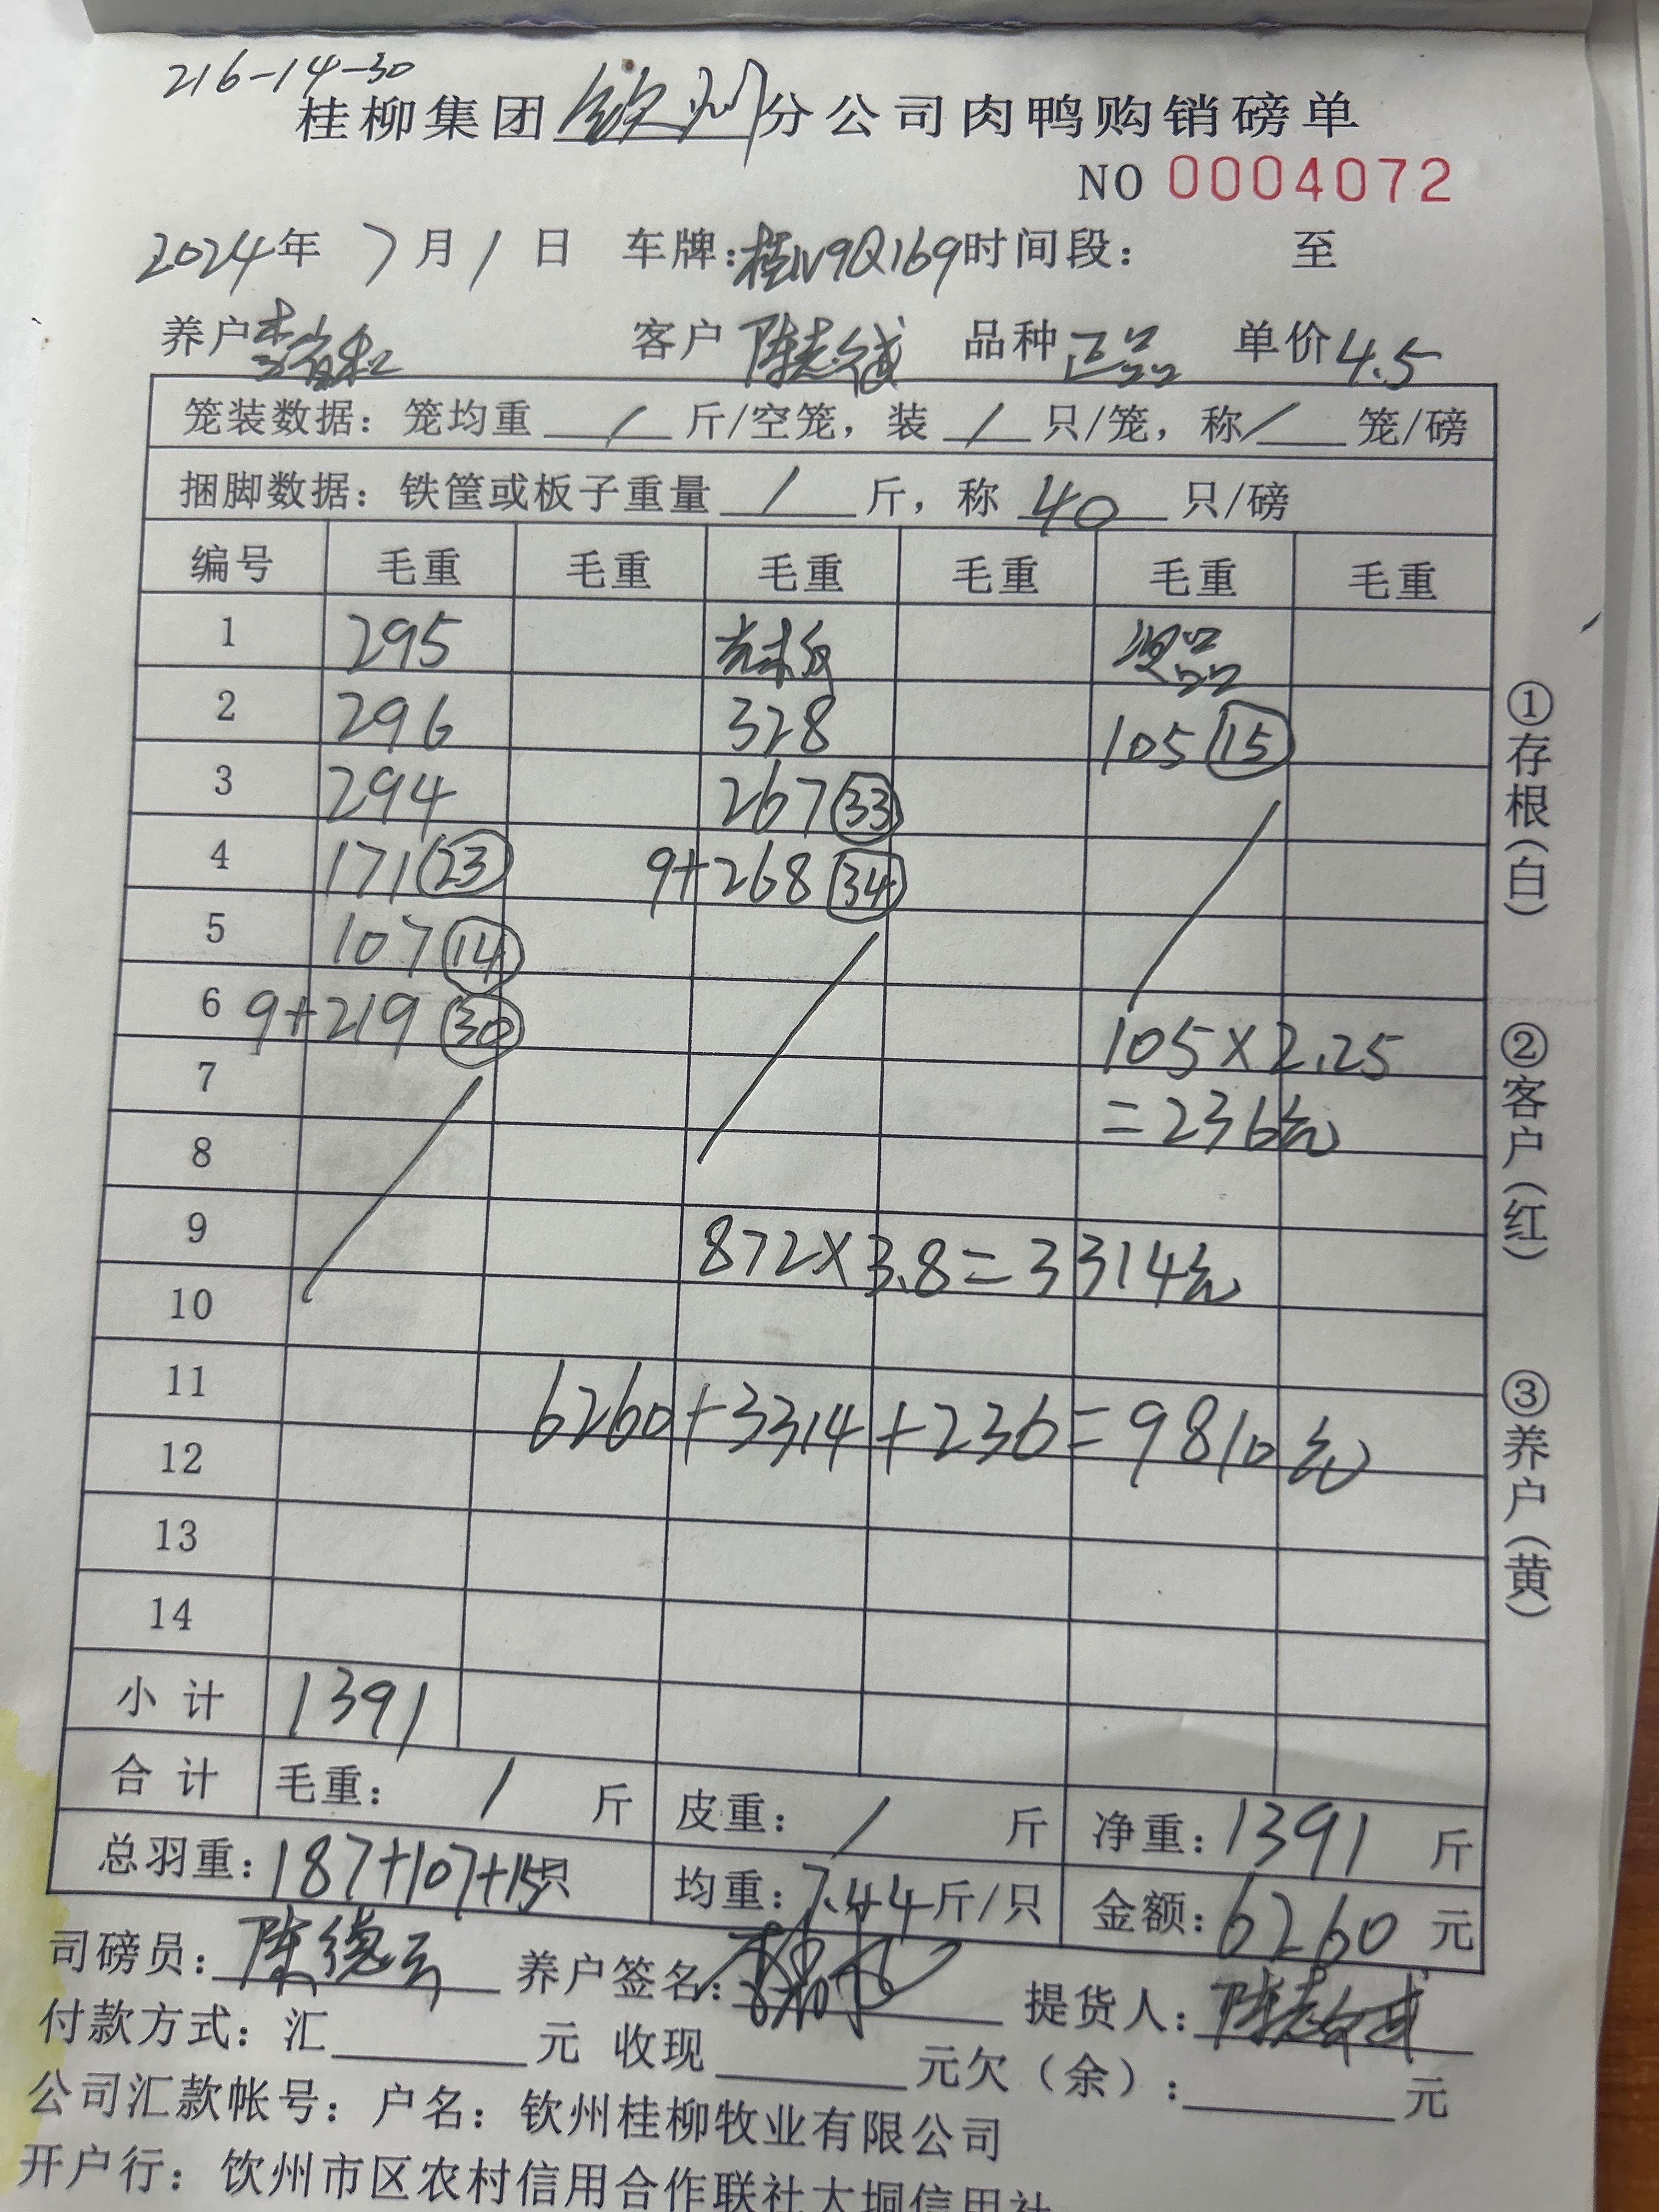 216-14-30
桂柳集团钦州分公司肉鸭购销磅单
NO 0004072
2024年 7月1日 车牌:桂N9Q169时间段: 至
养户 客户 陈志斌 品种 正品 单价4.5
笼装数据: 笼均重 / 斤/空笼, 装 / 只/笼, 称/ 笼/磅
捆脚数据: 铁筐或板子重量 / 斤, 称 40 只/磅
编号 毛重 毛重 毛重 毛重 毛重 毛重
1 295
2 296 328 105⑮
3 294 267㉝
4 171㉓ 9+268㉞
5 107⑭
6 9+219㉚ 105×2.25
7 =236元
8
9 872×3.8=3314元
10
11 6260+3314+236=9810元
12
13
14
小计 1391
合计 毛重: / 斤 皮重: / 斤 净重: 1391 斤
总羽重: 187+107+15只 均重: 7.44斤/只 金额: 6260 元
司磅员: 陈德云 养户签名: 提货人: 陈志斌
付款方式: 汇 元 收现 元欠(余): 元
公司汇款帐号: 户名: 钦州桂柳牧业有限公司
开户行: 钦州市区农村信用合作联社大垌信用社
①存根(白)
②客户(红)
③养户(黄)